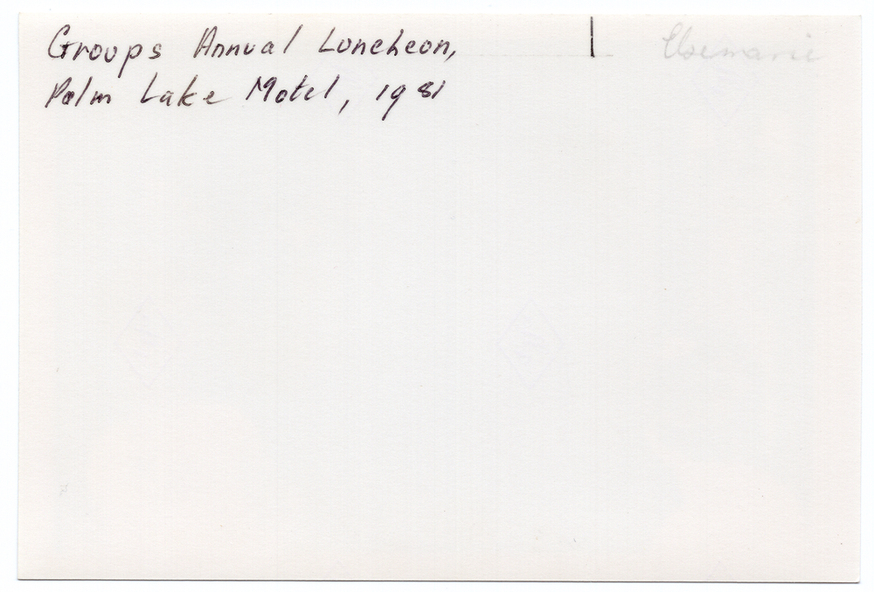 Groups Annual Luncheon,
Palm Lake Motel, 1981
Elsemarie